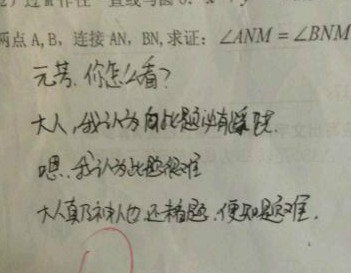 过 作任一直线与圆
两点 A, B, 连接 AN, BN, 求证: ∠ANM = ∠BNM
元芳.你怎么看?
大人,我认为此题必有蹊跷.
嗯.我认为此题很难
大人真乃神人也,还未看题.便知题难.